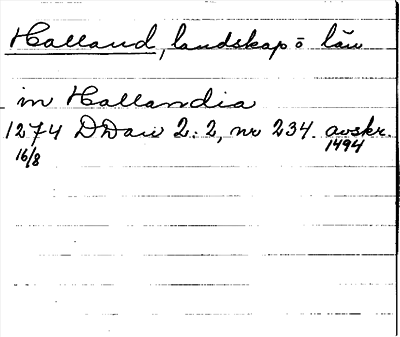 Halland, landskap ō län
in Hallandia
1274 DDan 2:2, nr 234. avskr.
16/8 1494